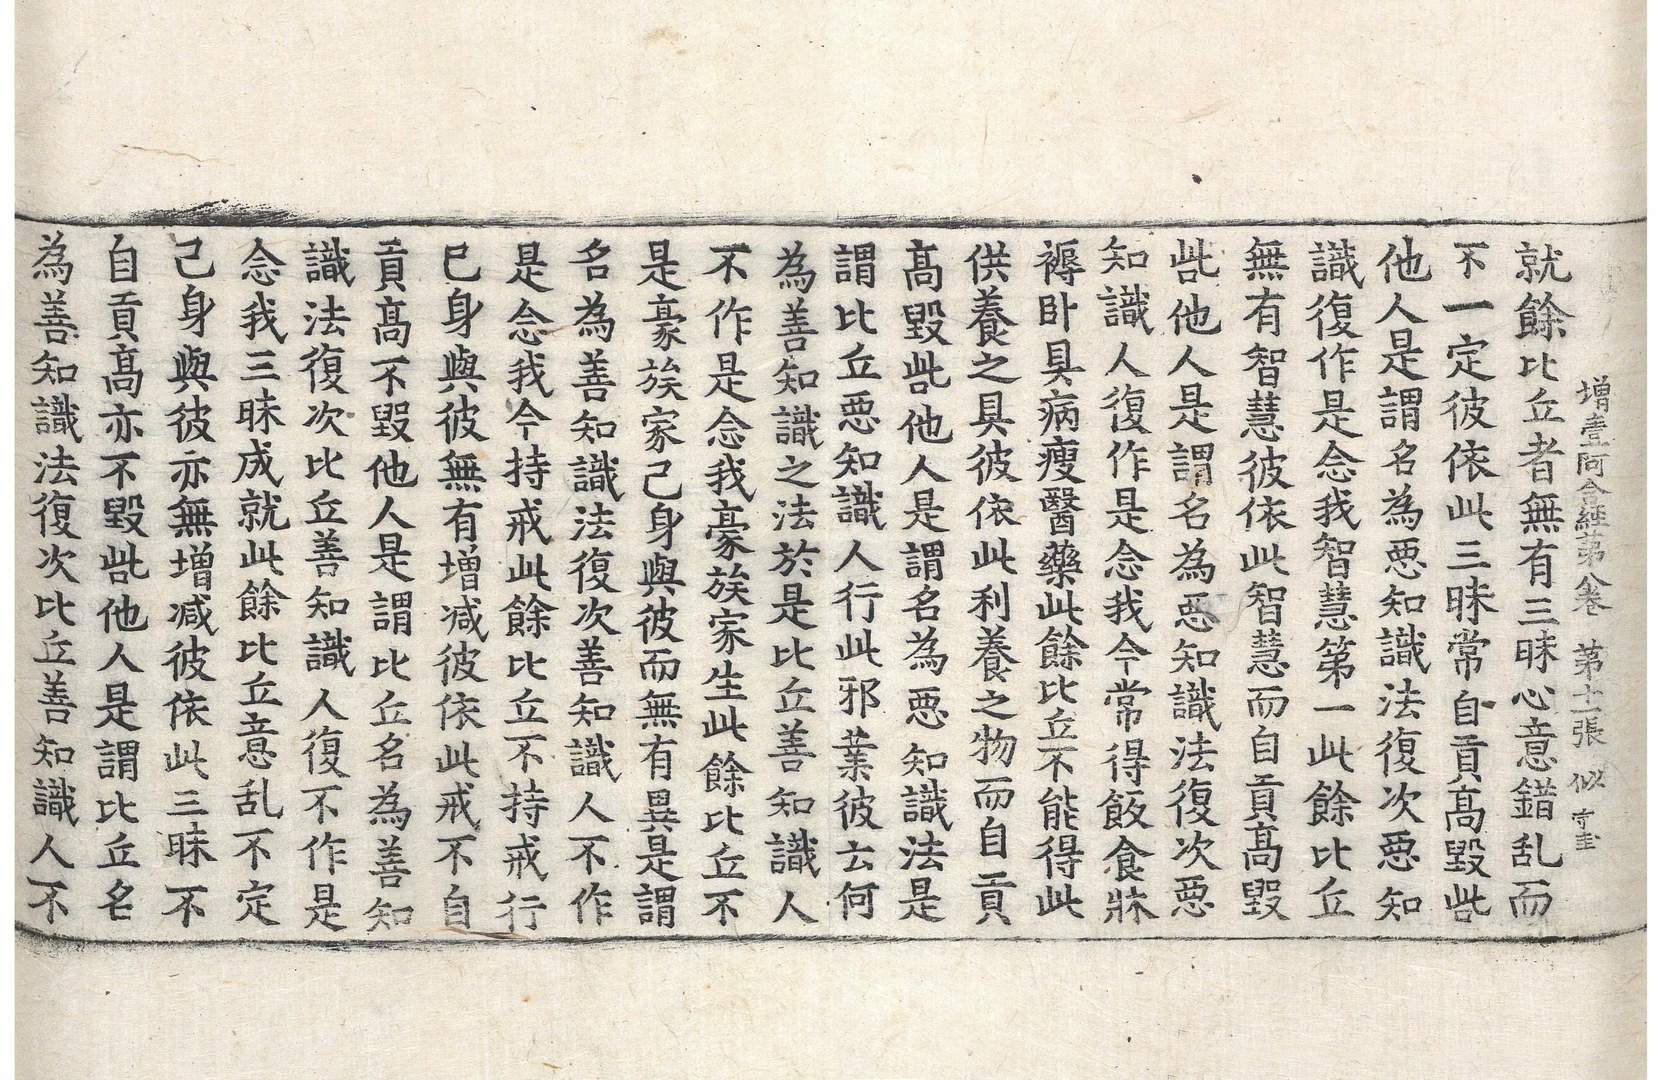 增壹阿含經第八卷 第十二張 似 寺圭
就餘比丘者無有三昧心意錯乱而
不一定彼依此三昧常自貢髙毀呰
他人是謂名為惡知識法復次惡知
識復作是念我智慧第一此餘比丘
無有智慧彼依此智慧而自貢髙毀
呰他人是謂名為惡知識法復次惡
知識人復作是念我今常得飯食牀
褥卧具病瘦醫藥此餘比丘不能得此
供養之具彼依此利養之物而自貢
髙毀呰他人是謂名為惡知識法是
謂比丘惡知識人行此邪業彼云何
為善知識之法於是比丘善知識人
不作是念我豪族家生此餘比丘不
是豪族家己身與彼而無有異是謂
名為善知識法復次善知識人不作
是念我今持戒此餘比丘不持戒行
己身與彼無有增减彼依此戒不自
貢髙不毀他人是謂比丘名為善知
識法復次比丘善知識人復不作是
念我三昧成就此餘比丘意乱不定
己身與彼亦無增减彼依此三昧不
自貢髙亦不毀呰他人是謂比丘名
為善知識法復次比丘善知識人不